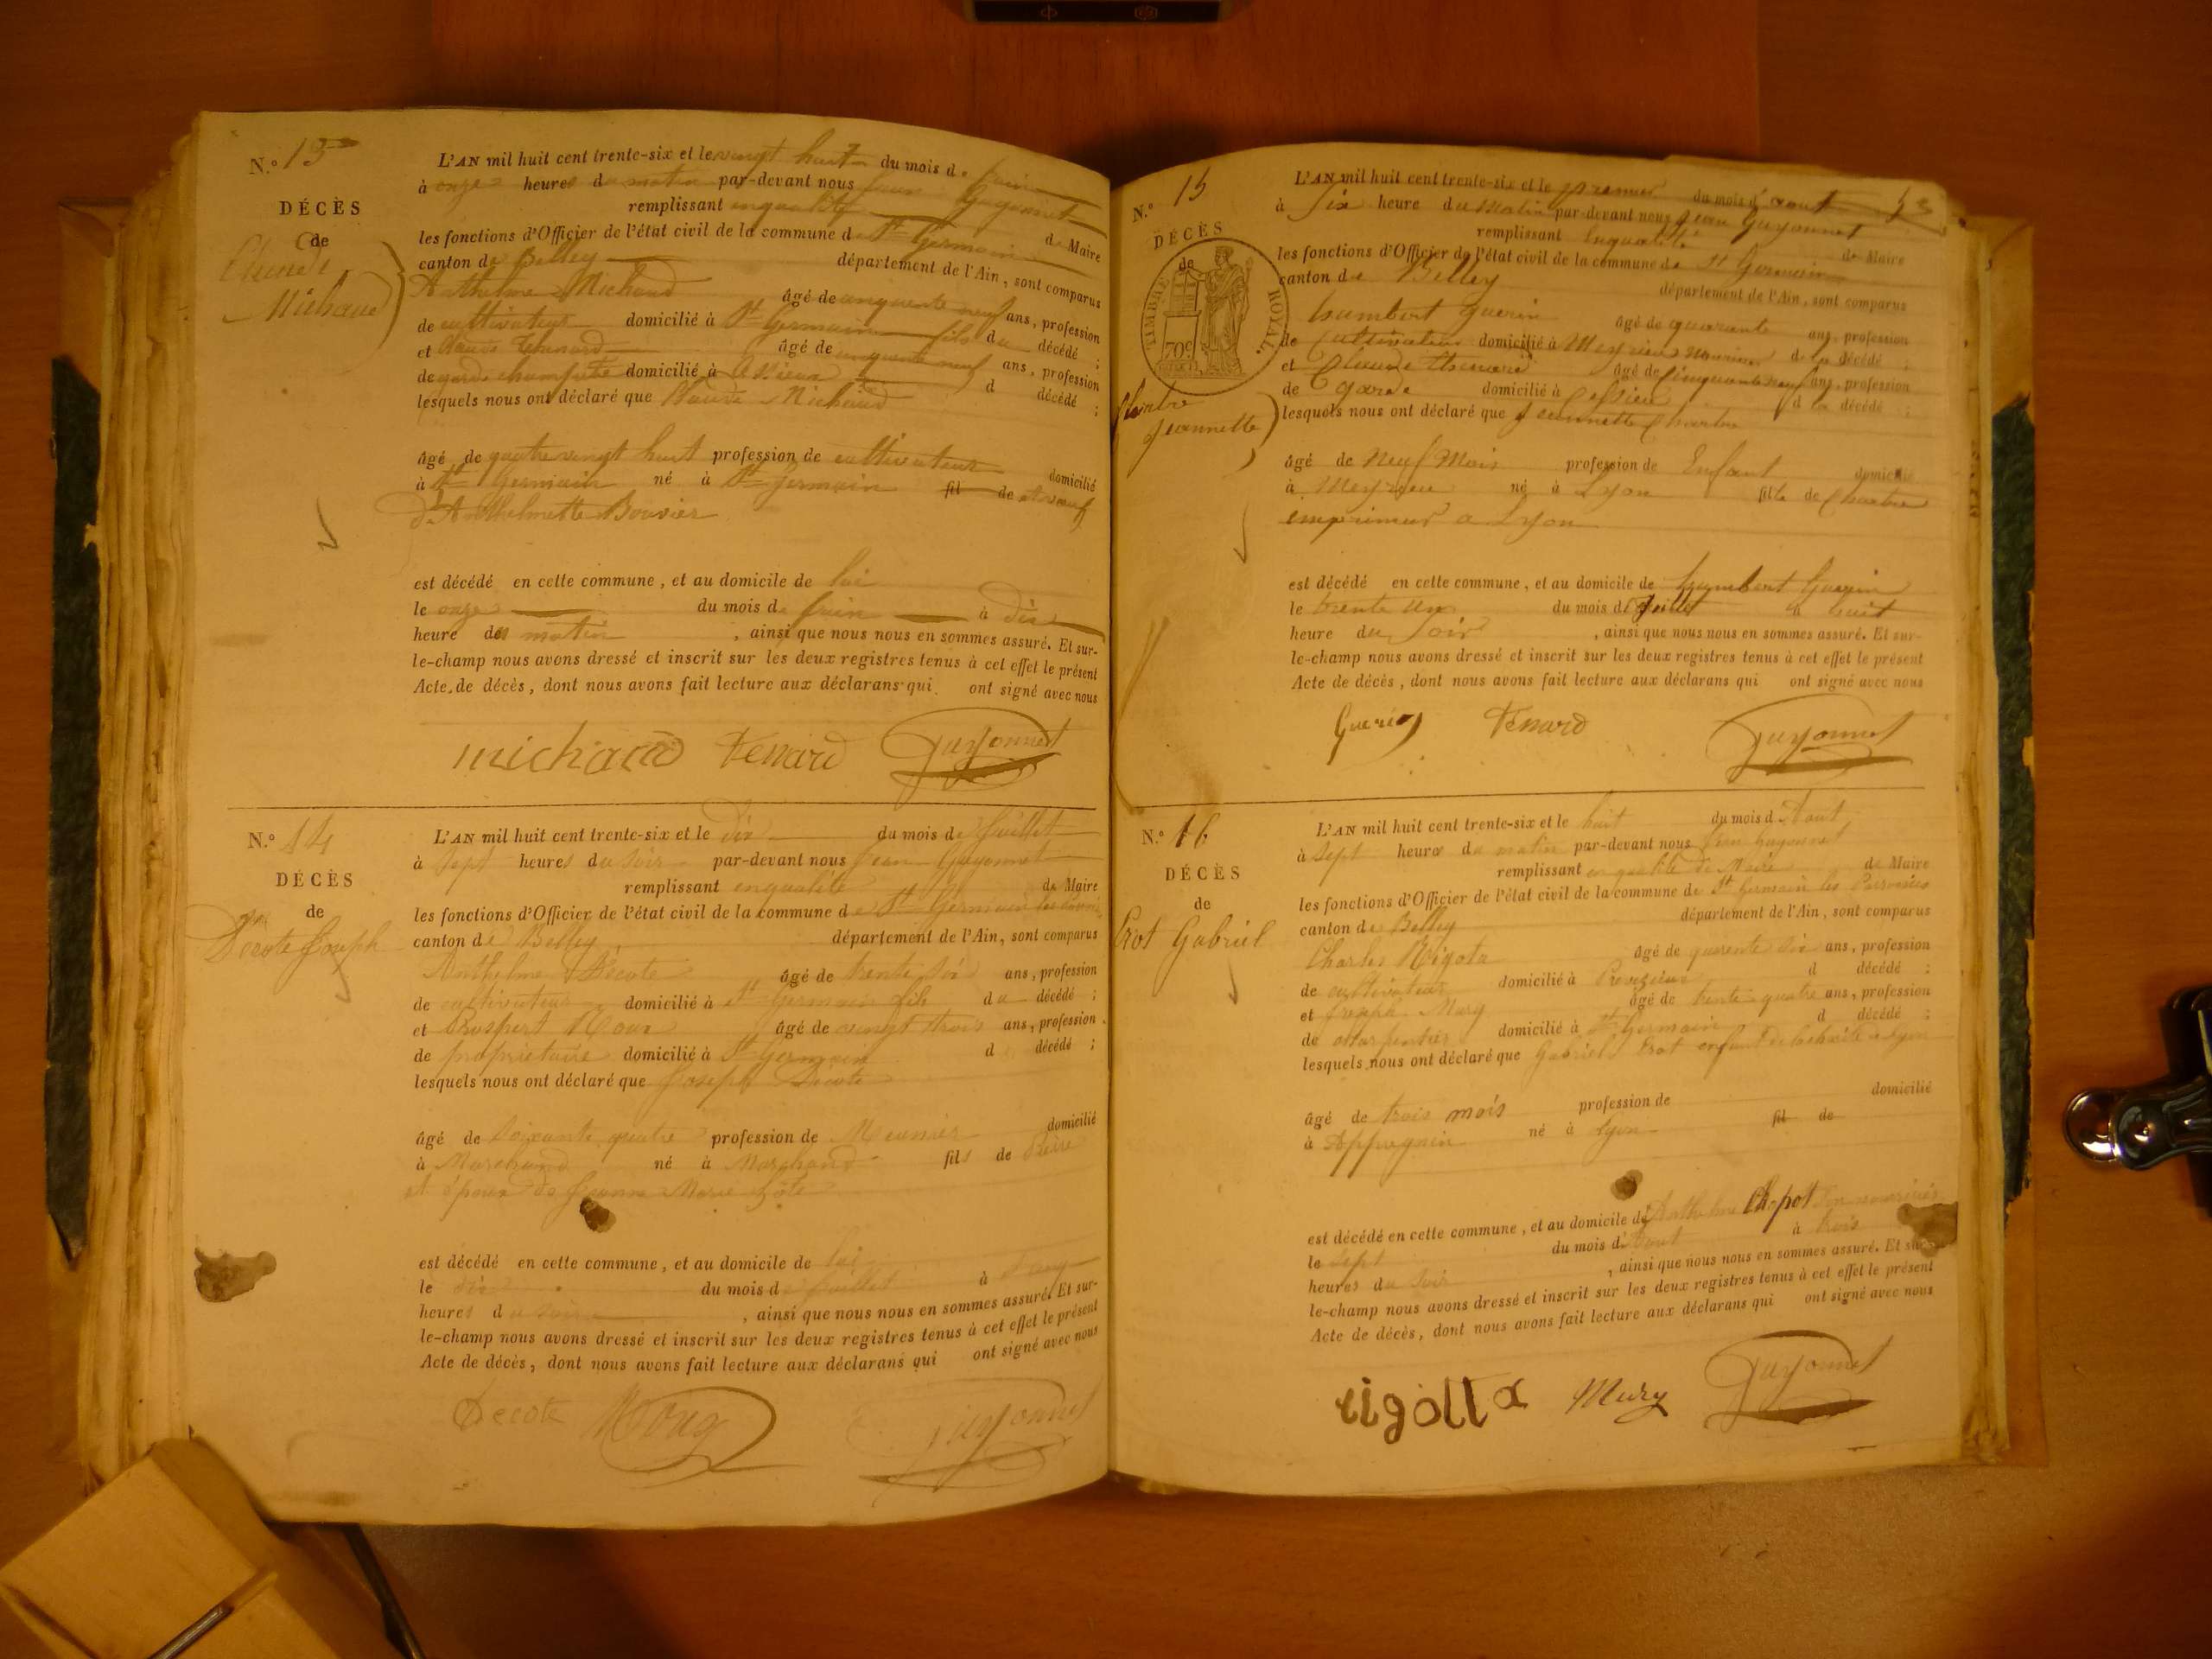 N.° 13
DÉCÈS
de
Claude
Michaud
L'AN mil huit cent trente-six et le vingt huit du mois de juin
à onze heures du matin par-devant nous Jean Guyonnet
remplissant en qualité de Maire
les fonctions d'Officier de l'état civil de la commune de St Germain
canton de Belley département de l'Ain, sont comparus
Anthelme Michaud âgé de cinquante neuf ans, profession
de cultivateur domicilié à St Germain fils du décédé ;
et Claude Tenard âgé de cinquante neuf ans, profession
de garde champêtre domicilié à d décédé ;
lesquels nous ont déclaré que Claude Michaud
âgé de quatre vingt huit profession de cultivateur domicilié
à St Germain né à St Germain fil de et veuf
d'Anthelmette Bouvier
est décédé en cette commune, et au domicile de lui
le onze du mois de juin à dix
heure du matin , ainsi que nous nous en sommes assuré. Et sur-
le-champ nous avons dressé et inscrit sur les deux registres tenus à cet effet le présent
Acte de décès, dont nous avons fait lecture aux déclarans qui ont signé avec nous
michaud Tenard Guyonnet
N.° 14
DÉCÈS
de
Décote Joseph
L'AN mil huit cent trente-six et le dix du mois de Juillet
à sept heures du soir par-devant nous Jean Guyonnet
remplissant en qualité de Maire
les fonctions d'Officier de l'état civil de la commune de St Germain les Paroisses
canton de Belley département de l'Ain, sont comparus
Anthelme Décote âgé de trente six ans, profession
de cultivateur domicilié à St Germain fils du décédé ;
et Prospert âgé de vingt trois ans, profession
de propriétaire domicilié à St Germain d décédé ;
lesquels nous ont déclaré que Joseph Décote
âgé de soixante quatre profession de Meunier domicilié
à Marchand né à Marchand fils de
et époux de Jeanne Marie
est décédé en cette commune, et au domicile de lui
le dix du mois de juillet à cinq
heures du soir , ainsi que nous nous en sommes assuré. Et sur-
le-champ nous avons dressé et inscrit sur les deux registres tenus à cet effet le présent
Acte de décès, dont nous avons fait lecture aux déclarans qui ont signé avec nous
Decote Guyonnet
53
N.° 15
DÉCÈS
de
TIMBRE ROYAL.
70c
Jeannette
L'AN mil huit cent trente-six et le premier du mois d'aout
à six heure du matin par-devant nous Jean Guyonnet
remplissant Enqualité de Maire
les fonctions d'Officier de l'état civil de la commune de St Germain
canton de Belley département de l'Ain, sont comparus
humbert Guerin âgé de quarante ans, profession
de Cultivateur domicilié à Meyrieu de la décédé ;
et Claude Thenard âgé de Cinquante neuf ans, profession
de Garde domicilié à d la décédé ;
lesquels nous ont déclaré que Jeannette Chartre
âgé de Neuf Mois profession de Enfant domicilié
à Meyrieu né à Lyon fille de Chartre
imprimeur a Lyon
est décédé en cette commune, et au domicile de humbert Guerin
le trente un du mois de Juillet à huit
heure du Soir , ainsi que nous nous en sommes assuré. Et sur-
le-champ nous avons dressé et inscrit sur les deux registres tenus à cet effet le présent
Acte de décès, dont nous avons fait lecture aux déclarans qui ont signé avec nous
Guerin Tenard Guyonnet
N.° 16
DÉCÈS
de
Prot Gabriel
L'AN mil huit cent trente-six et le huit du mois d'Aout
à sept heures du matin par-devant nous Jean Guyonnet
remplissant en qualité de Maire de Maire
les fonctions d'Officier de l'état civil de la commune de St Germain les Paroisses
canton de Belley département de l'Ain, sont comparus
Charles Rigola âgé de quarente six ans, profession
de cultivateur domicilié à d décédé ;
et Joseph Mury âgé de trente quatre ans, profession
de charpentier domicilié à St Germain d décédé ;
lesquels nous ont déclaré que Gabriel Prot enfant de la charité a Lyon
âgé de trois mois profession de domicilié
à Appregnin né à Lyon fil de
est décédé en cette commune, et au domicile de Anthelme Chapot
le sept du mois d'Aout à trois
heures du soir , ainsi que nous nous en sommes assuré. Et sur-
le-champ nous avons dressé et inscrit sur les deux registres tenus à cet effet le présent
Acte de décès, dont nous avons fait lecture aux déclarans qui ont signé avec nous
rigolla Mury Guyonnet